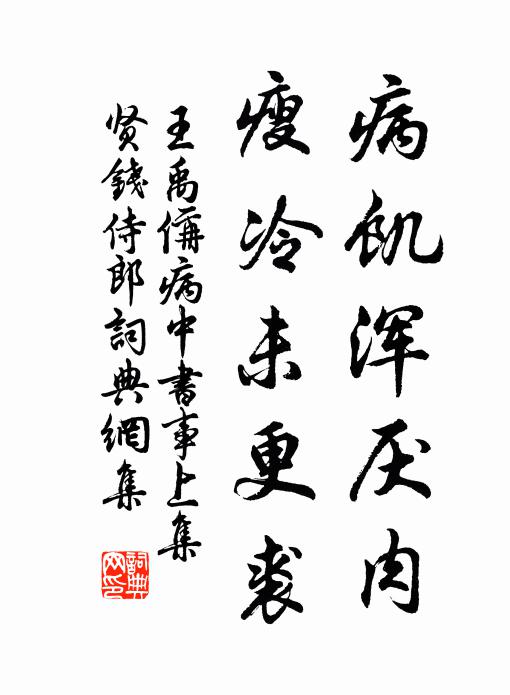 病飢浑厌肉
瘦冷未更裘
王禹偁病中書事上集
贤錢侍郎詞典網集
詞典
网印